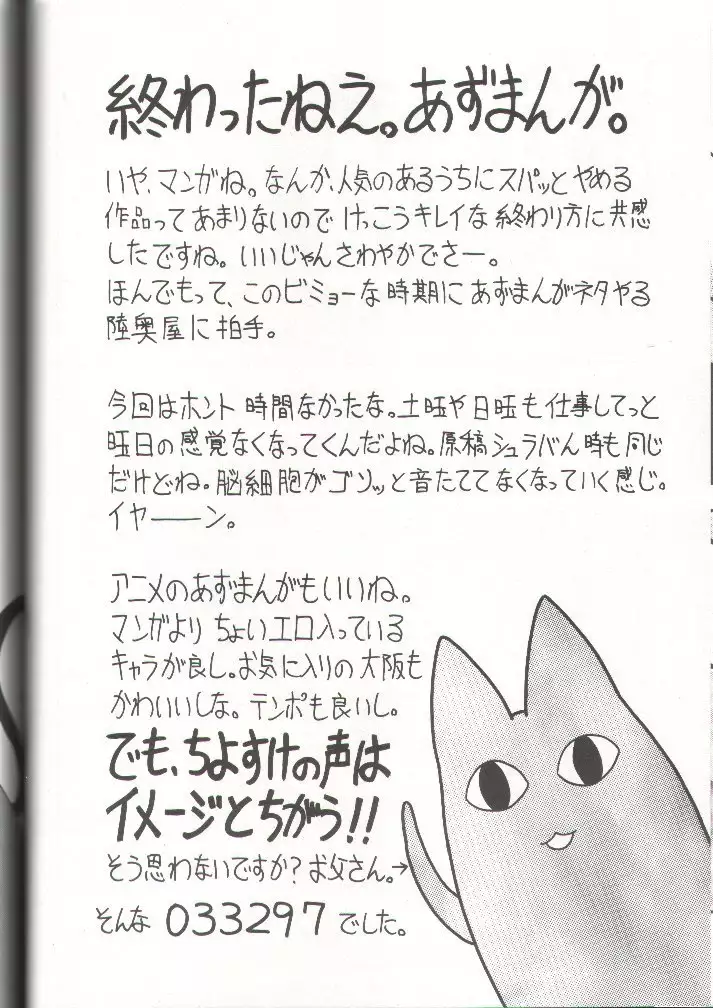 終わったねえ。あずまんが。
いや、マンガね。なんか、人気のあるうちにスパッとやめる
作品ってあまりないので けっこうキレイな 終わり方に共感
したですね。いいじゃんさわやかでさー。
ほんでもって、このビミョーな時期に あずまんがネタやる
陸奥屋に拍手。
今回はホント 時間なかったな。土曜や日曜も仕事してっと
曜日の感覚なくなってくんだよね。原稿シュラバん時も同じ
だけどね。脳細胞がゴソッと音たててなくなっていく感じ。
イヤーーン。
アニメのあずまんがもいいね。
マンガより ちょいエロ入っている
キャラが良し。お気に入りの大阪も
かわいいしな。テンポも良いし。
でも、ちよすけの声は
イメージとちがう!!
そう思わないですか?お父さん。→
そんな 033297 でした。